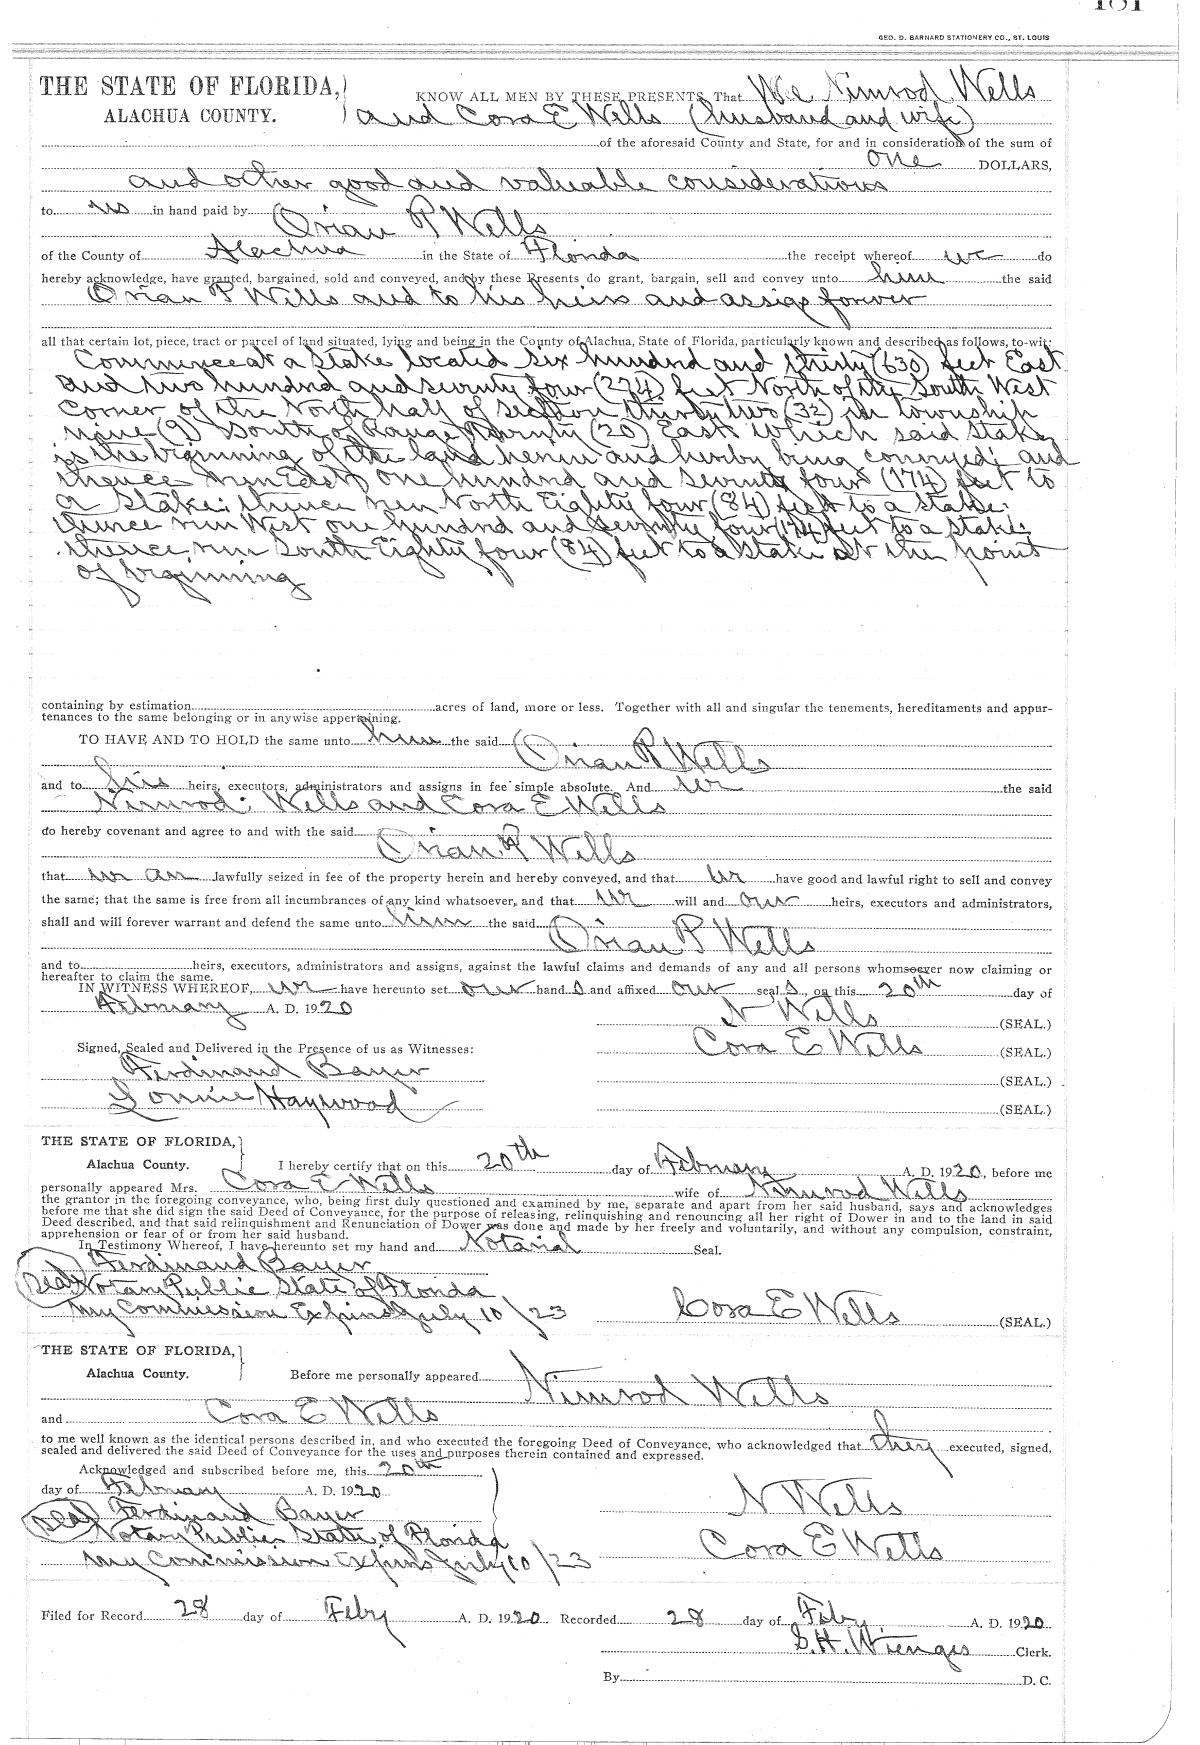 GEO. D. BARNARD STATIONERY CO., ST. LOUIS
THE STATE OF FLORIDA, KNOW ALL MEN BY THESE PRESENTS, That We Nimrod Wells
ALACHUA COUNTY. and Cora E Wells (husband and wife)
of the aforesaid County and State, for and in consideration of the sum of
one DOLLARS,
and other good and valuable considerations
to us in hand paid by Orian P Wells
of the County of Alachua in the State of Florida the receipt whereof we do
hereby acknowledge, have granted, bargained, sold and conveyed, and by these Presents do grant, bargain, sell and convey unto him the said
Orian P Wells and to his heirs and assigs forever
all that certain lot, piece, tract or parcel of land situated, lying and being in the County of Alachua, State of Florida, particularly known and described as follows, to-wit:
Commence at a Stake located Six hundred and thirty (630) feet East
and two hundred and seventy four (274) feet North of the South West
corner of the North half of section thirty two (32) in township
nine (9) South of Range twenty (20) East which said stake
is the beginning of the land herein and hereby being conveyed; and
thence run East one hundred and seventy four (174) feet to
a Stake; thence run North Eighty four (84) feet to a stake;
thence run West one hundred and seventy four (174) feet to a stake;
thence run South Eighty four (84) feet to a stake at the point
of beginning
containing by estimation acres of land, more or less. Together with all and singular the tenements, hereditaments and appur-
tenances to the same belonging or in anywise appertaining.
TO HAVE AND TO HOLD the same unto him the said Orian P Wells
and to his heirs, executors, administrators and assigns in fee simple absolute. And we the said
Nimrod Wells and Cora E Wells
do hereby covenant and agree to and with the said Orian P Wells
that we are lawfully seized in fee of the property herein and hereby conveyed, and that we have good and lawful right to sell and convey
the same; that the same is free from all incumbrances of any kind whatsoever, and that we will and our heirs, executors and administrators,
shall and will forever warrant and defend the same unto him the said Orian P Wells
and to heirs, executors, administrators and assigns, against the lawful claims and demands of any and all persons whomsoever now claiming or
hereafter to claim the same.
IN WITNESS WHEREOF, we have hereunto set our hand s and affixed our seal s, on this 20th day of
February A. D. 1920
N Wells (SEAL.)
Cora E Wells (SEAL.)
Signed, Sealed and Delivered in the Presence of us as Witnesses:
Ferdinand Bayer (SEAL.)
Lonnie Haywood (SEAL.)
THE STATE OF FLORIDA,
Alachua County. I hereby certify that on this 20th day of February A. D. 1920, before me
personally appeared Mrs. Cora E Wells wife of Nimrod Wells
the grantor in the foregoing conveyance, who, being first duly questioned and examined by me, separate and apart from her said husband, says and acknowledges
before me that she did sign the said Deed of Conveyance, for the purpose of releasing, relinquishing and renouncing all her right of Dower in and to the land in said
Deed described, and that said relinquishment and Renunciation of Dower was done and made by her freely and voluntarily, and without any compulsion, constraint,
apprehension or fear of or from her said husband.
In Testimony Whereof, I have hereunto set my hand and Notarial Seal.
Ferdinand Bayer
Seal Notary Public State of Florida
My Commission Expires July 10/23 Cora E Wells (SEAL.)
THE STATE OF FLORIDA,
Alachua County. Before me personally appeared Nimrod Wells
and Cora E Wells
to me well known as the identical persons described in, and who executed the foregoing Deed of Conveyance, who acknowledged that they executed, signed,
sealed and delivered the said Deed of Conveyance for the uses and purposes therein contained and expressed.
Acknowledged and subscribed before me, this 20th
day of February A. D. 1920
N Wells
Ferdinand Bayer
Seal Notary Public State of Florida
Cora E Wells
My Commission Expires July 10/23
Filed for Record 28 day of Feby A. D. 1920 Recorded 28 day of Feby A. D. 1920
S.H. Wienges Clerk.
By D. C.